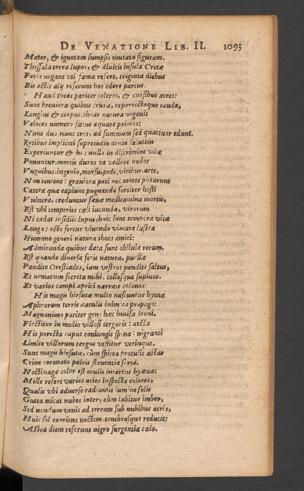 DE VENATIONE LIB. II. 1093
Mater, & ignotam sumpsit mutata figuram.
Thessala terra lupos, & diuitis insula Cretæ
Ferre negant vel fama refert, triginta diebus
Bis actis alij referunt hos edere partus.
Haud tinus pariter celeres, & cursibus acres:
Sunt breuiora quibus crura, exporrectaque cauda,
Longius & corpus
Veloces numero fœtus æquare priores:
Nunc duo, nunc tres, ad summum sed quattuor edunt.
Retibus impliciti supremam ante salutem
Experiuntur & hi: nullo in discrimine vitæ
Ponuntur mortis duros vt vellere nodos
Vnguibus ingenio, morsu, pede, viribus, arte,
Non timeant: grauiora pati nec morte
Cætera quæ captiuos pugnando fortiter hosti
Vulnera, creduntur sæuæ medicamina mortis,
Est vbi temperies cæli iucunda, virorum
Ni cedat insidiis lupus, huic sunt tempora vitæ
Longa: octo fertur viuendo vincere lustra
Humano generi natura thoes amici:
Admiranda quibus data sunt obstacula rerum.
Est quando diuersa feris natura, puellæ
Pandite Orestiades, iam vestros pandite saltus,
Et nemorum secreta mihi, collesque supinos.
Et varios campi aprici narrate colonos
His magis hirsutæ multo nascuntur hyænæ
Aphrorum terris catulis inimica propago:
Magnanimo pariter gens hæc inuisa leoni.
Flectitur in medio villosi tergoris: arcta
His porrecta caput coniungit spina: nigranti
Limite villorum tergus vestitur vtrinque.
Sunt magis hirsutæ, cum spicea protulit æstas
Crine coronato patris florentia
Noctiuaga color est oculis incertus hyænæ:
Mille refert varias acies inspecta colores,
Qualis vbi aduerso radiantis lumine solis
Gutta micat nubes inter, cum labitur imber,
Sed nondum venit ad terram sub nubibus aëris,
Huic sol exoriens noctem tenebrasque reducit:
Actea diem referens nigro surgentia cœlo.